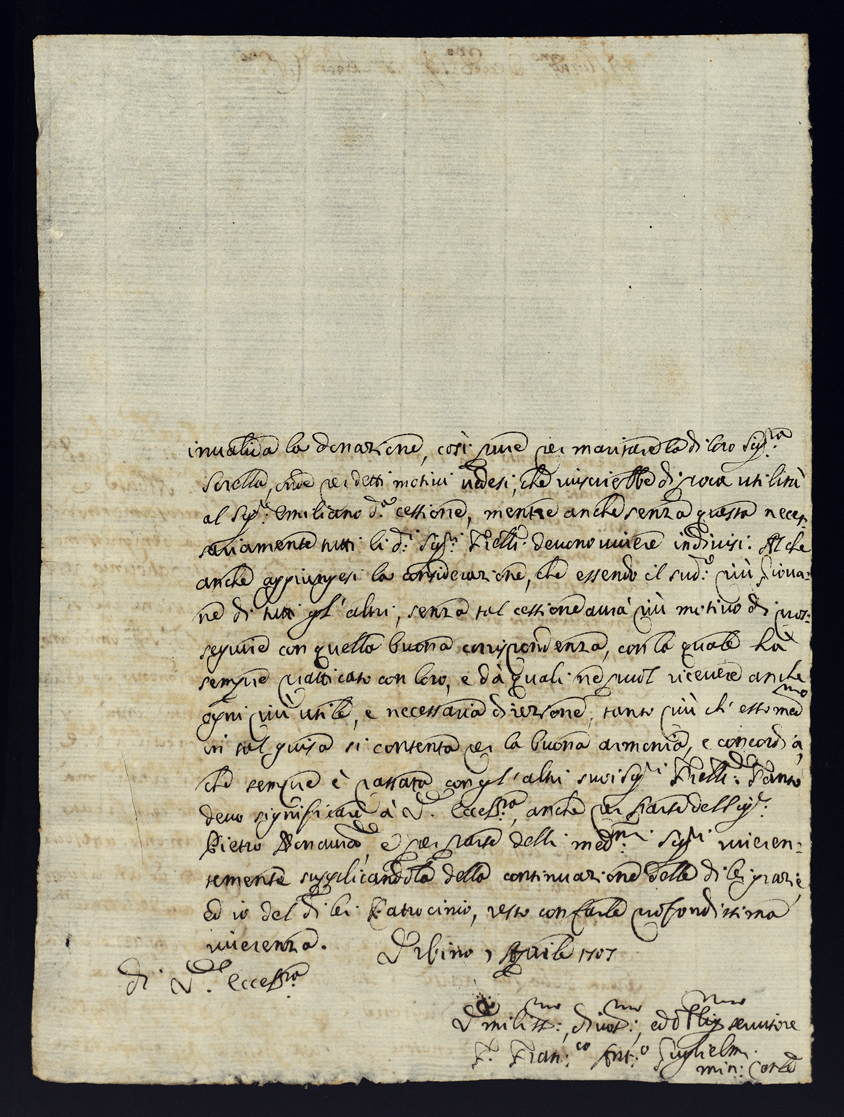 invalida la donazione, così pure per maritare la di loro Sig:ra
Sorella, che per detti motivi vedesi, che riuscirebbe di poca utilità
al Sig:r Emiliano d:a cessione, mentre anche senza questa neces-
sariamente tutti li d:i Sig:ri Frelli: devono vivere indivisi. Al che
anche aggiungesi la considerazione, che essendo il sud:o più giova-
ne di tutti gl'altri, senza tal cessione avrà più motivo di pro-
seguire con quella buona corrispondenza, con la quale hà
sempre praticato con loro, e dà quali ne puol ricevere anche
ogni più utile, e necessaria direzione, tanto più ch'esso med:mo
in tal guisa si contenta per la buona armonia, e concordia,
che sempre è passata con gl'altri suoi Sig:ri Frelli: Tanto
devo significare à V. Eccess:a, anche per parte del Sig:r
Pietro e per parte delli med:mi Sig:ri riveren-
temente supplicandola della continuazione delle di lei grazie,
Ed io del di lei Patrocinio, resto con farle profondissima
riverenza. Urbino 1 Aprile 1707
di V. Eccess:a
Vmiliss:mo, divot:mo, ed obblig:mo servitore
F. Fran:co Ant:o Guglielmi
min: Con:le